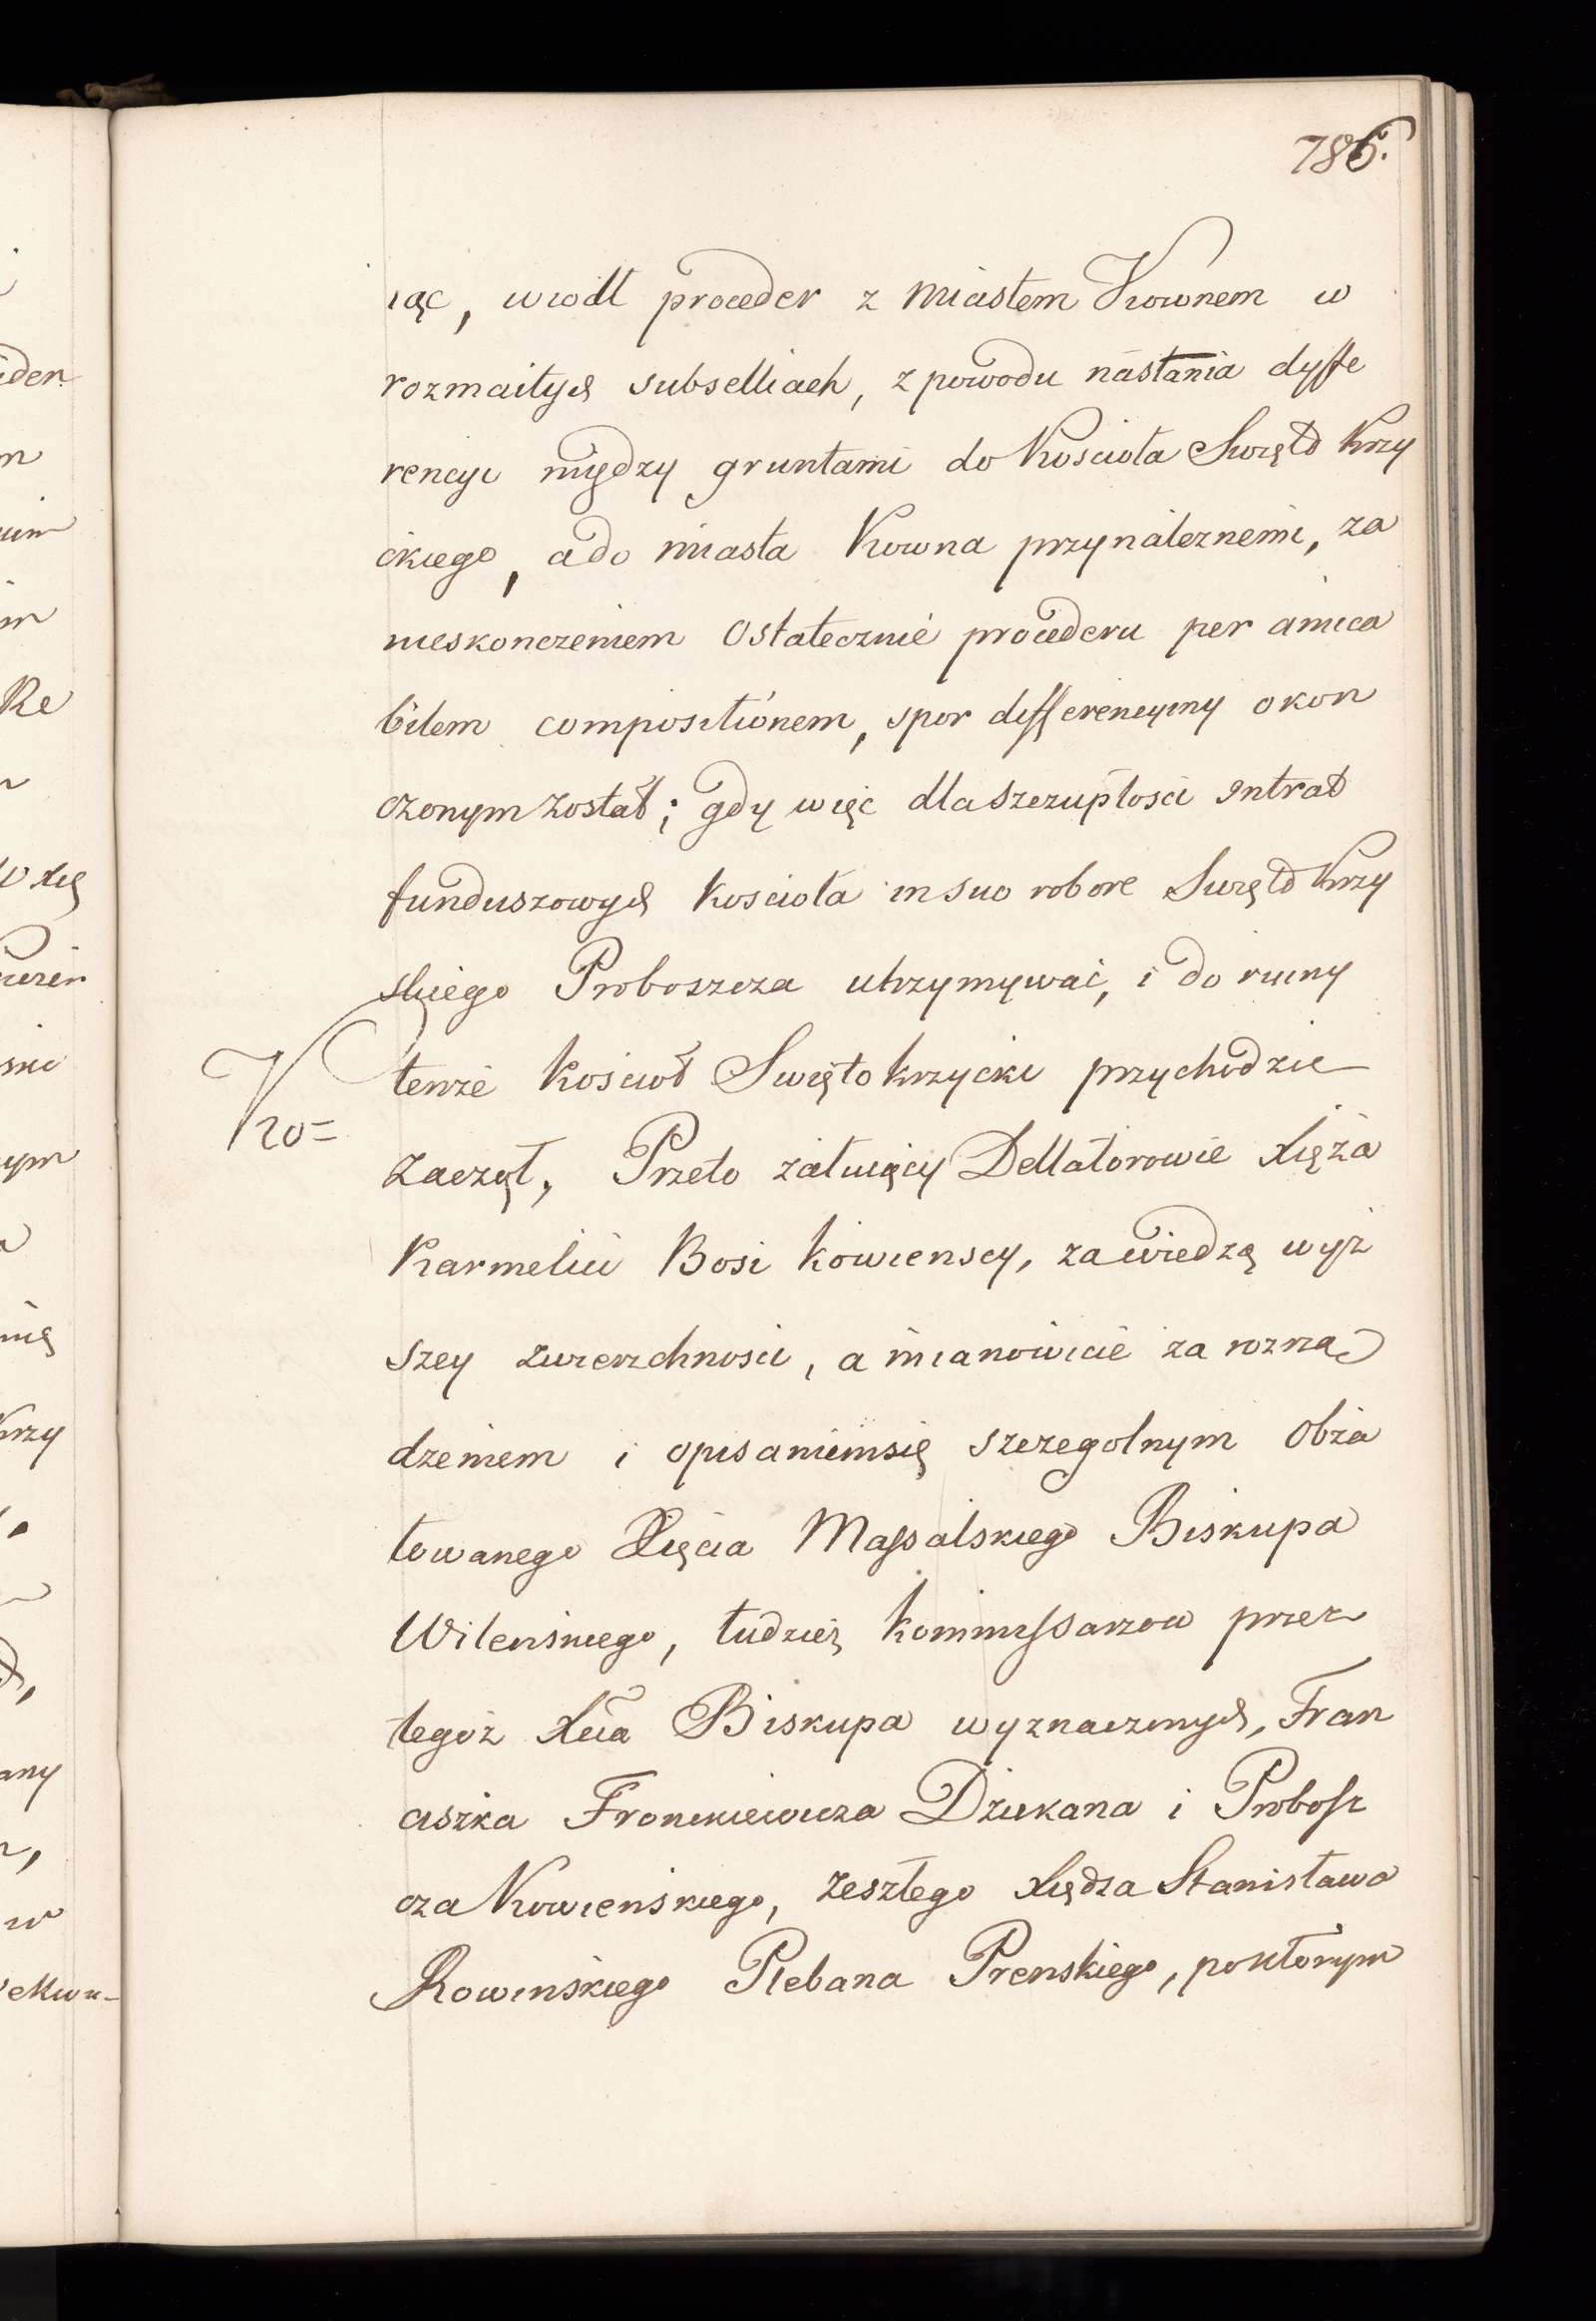 786.
iąc, wiodł proceder z miastem Kownem w
rozmaitych subselliach, z powodu nastania dyffe
rencyi między gruntami do Kościoła Swięto Krzy
ckiego, a do miasta Kowna przynależnemi, za
nieskonczeniem ostatecznie procederu per amica
bilem compositionem, spor differencyiny okon
czonym został; gdy więc dla szczupłosci intrat
funduszowych kościoła in suo robore Swięto Krzy
skiego Proboszcza utrzymywać, i do ruiny
tenże kościoł Swięto krzycki przychodzić
Kro=
zaczął, Przeto żałuiący Dellatorowie Xięża
Karmelici Bosi kowienscy, za wiedzą wyż
szey zwierzchnosci, a mianowicie za rozrzą
dzeniem i opisaniem się szczegolnym obża
łowanego Xięcia Massalskiego Biskupa
Wilenskiego, tudzież kommissarzow przez
tegoż Xcia Biskupa wyznaczonych, Fran
ciszka Fronckiewicza Dziekana i Probosz
cza Kowieńskiego, zeszłego Xiędza Stanisława
Rowinskiego Plebana Prenskiego, po którym